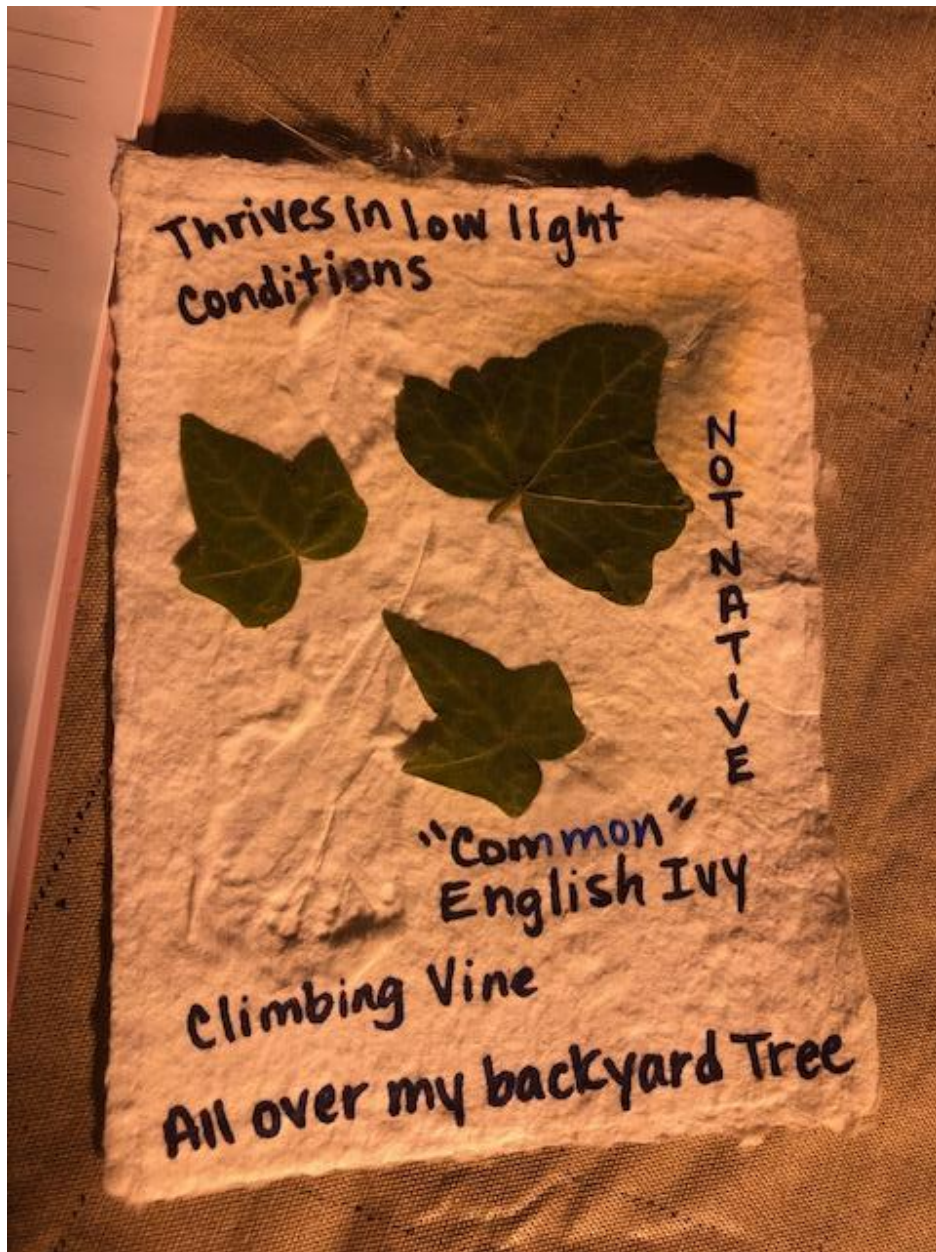 Thrives in low light
Conditions
NOT NATIVE
"Common"
English Ivy
Climbing Vine
All over my backyard Tree